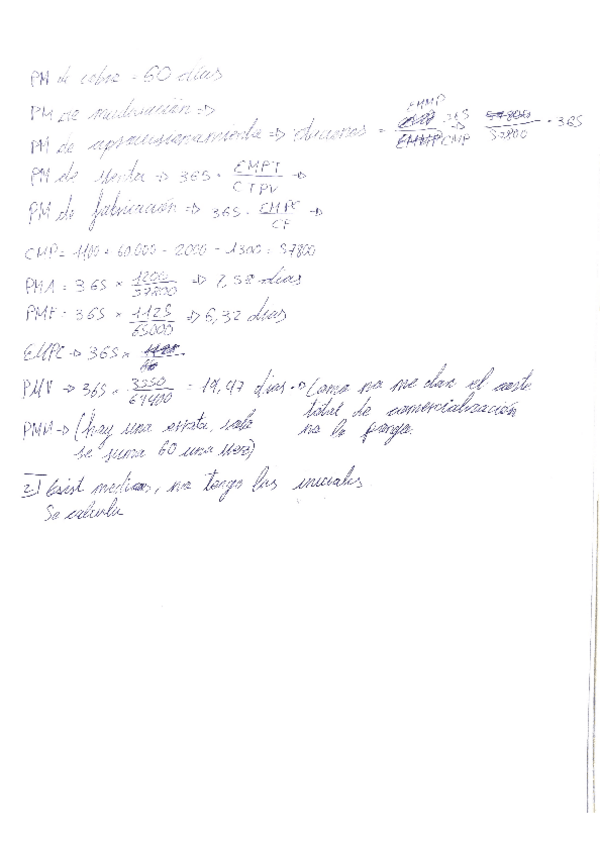 PM de cobro = 60 días
PM de maduración =>
PM de aprovisionamiento => = EMMP · 365 / CMP => 37800 · 365
PM de Venta => 365 · EMPT / CTPV =>
PM de fabricación => 365 · EMPC / CF =>
CMP = 1100 + 60.000 - 2000 - 1300 = 37800
PMA = 365 × 1200 / 37800 => 7,58 días
PMF = 365 × 1125 / 65000 => 6,32 días
EMPC => 365 ×
PMV => 365 × 3350 / = 19,47 días => Como no me dan el coste
total de comercialización
no lo pongo.
PMM => (hay una errata, solo
se suma 60 una vez)
2) Exist medias, no tengo las iniciales.
Se calcula